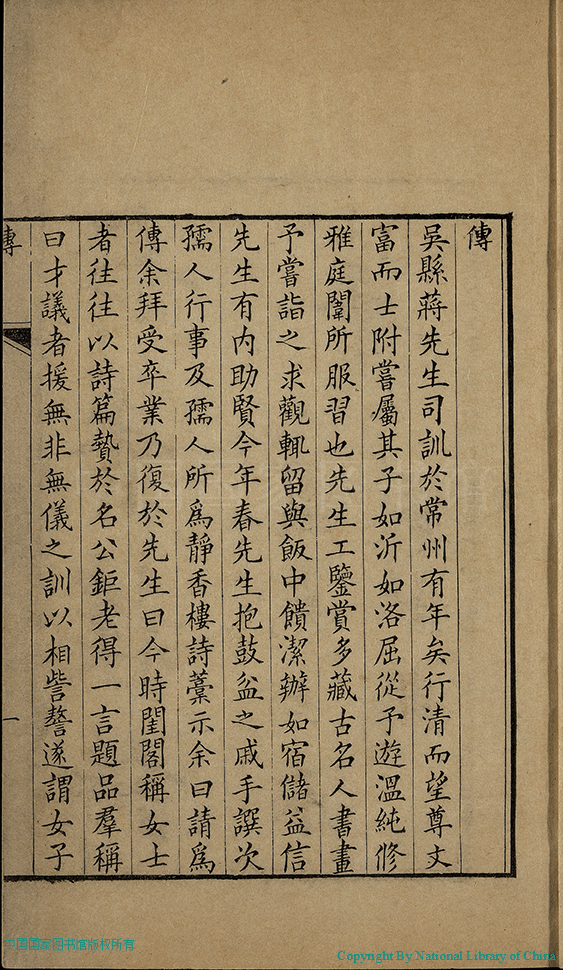 傳
吳縣蔣先生司訓於常州有年矣行清而望尊丈
富而士附嘗屬其子如沂如洛屈從予遊溫純修
雅庭闈所服習也先生工鑒賞多藏古名人書畫
予嘗詣之求觀輒留與飯中饋潔辦如宿儲益信
先生有內助賢今年春先生抱鼓盆之戚手譔次
孺人行事及孺人所為靜香樓詩藳示余曰請為
傳余拜受卒業乃復於先生曰今時閨閣稱女士
者往往以詩篇贄於名公鉅老得一言題品羣稱
曰才議者援無非無儀之訓以相訾謷遂謂女子
傳
一
中国国家图书馆版权所有
Copyright By National Library of China